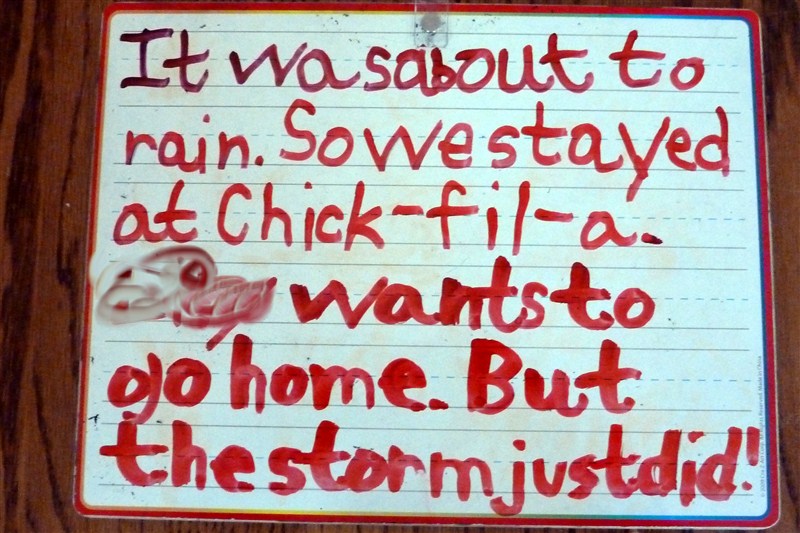 It was about to
rain. So we stayed
at Chick-fil-a.
wants to
go home. But
the storm just did!